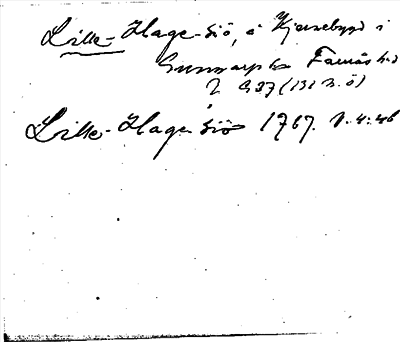 Lille-Hage-Siö, å Kjersebygd i
Gunnarps sn Faurås hd
2 G 37 (131 n. ö)
Lille-Hage siö 1767. V.4:46